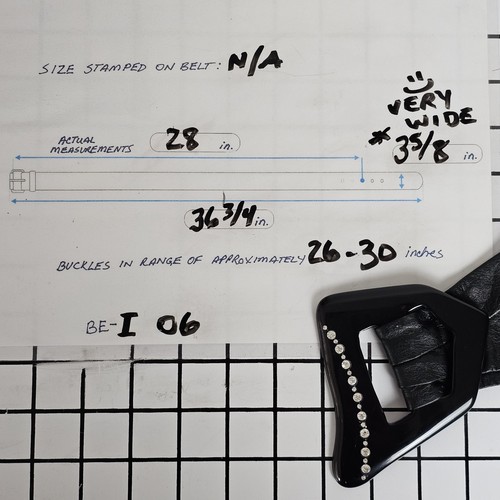 SIZE STAMPED ON BELT: N/A
VERY
WIDE
ACTUAL
MEASUREMENTS
28 in.
* 3 5/8 in.
36 3/4 in.
BUCKLES IN RANGE OF APPROXIMATELY 26-30 inches
BE-I 06